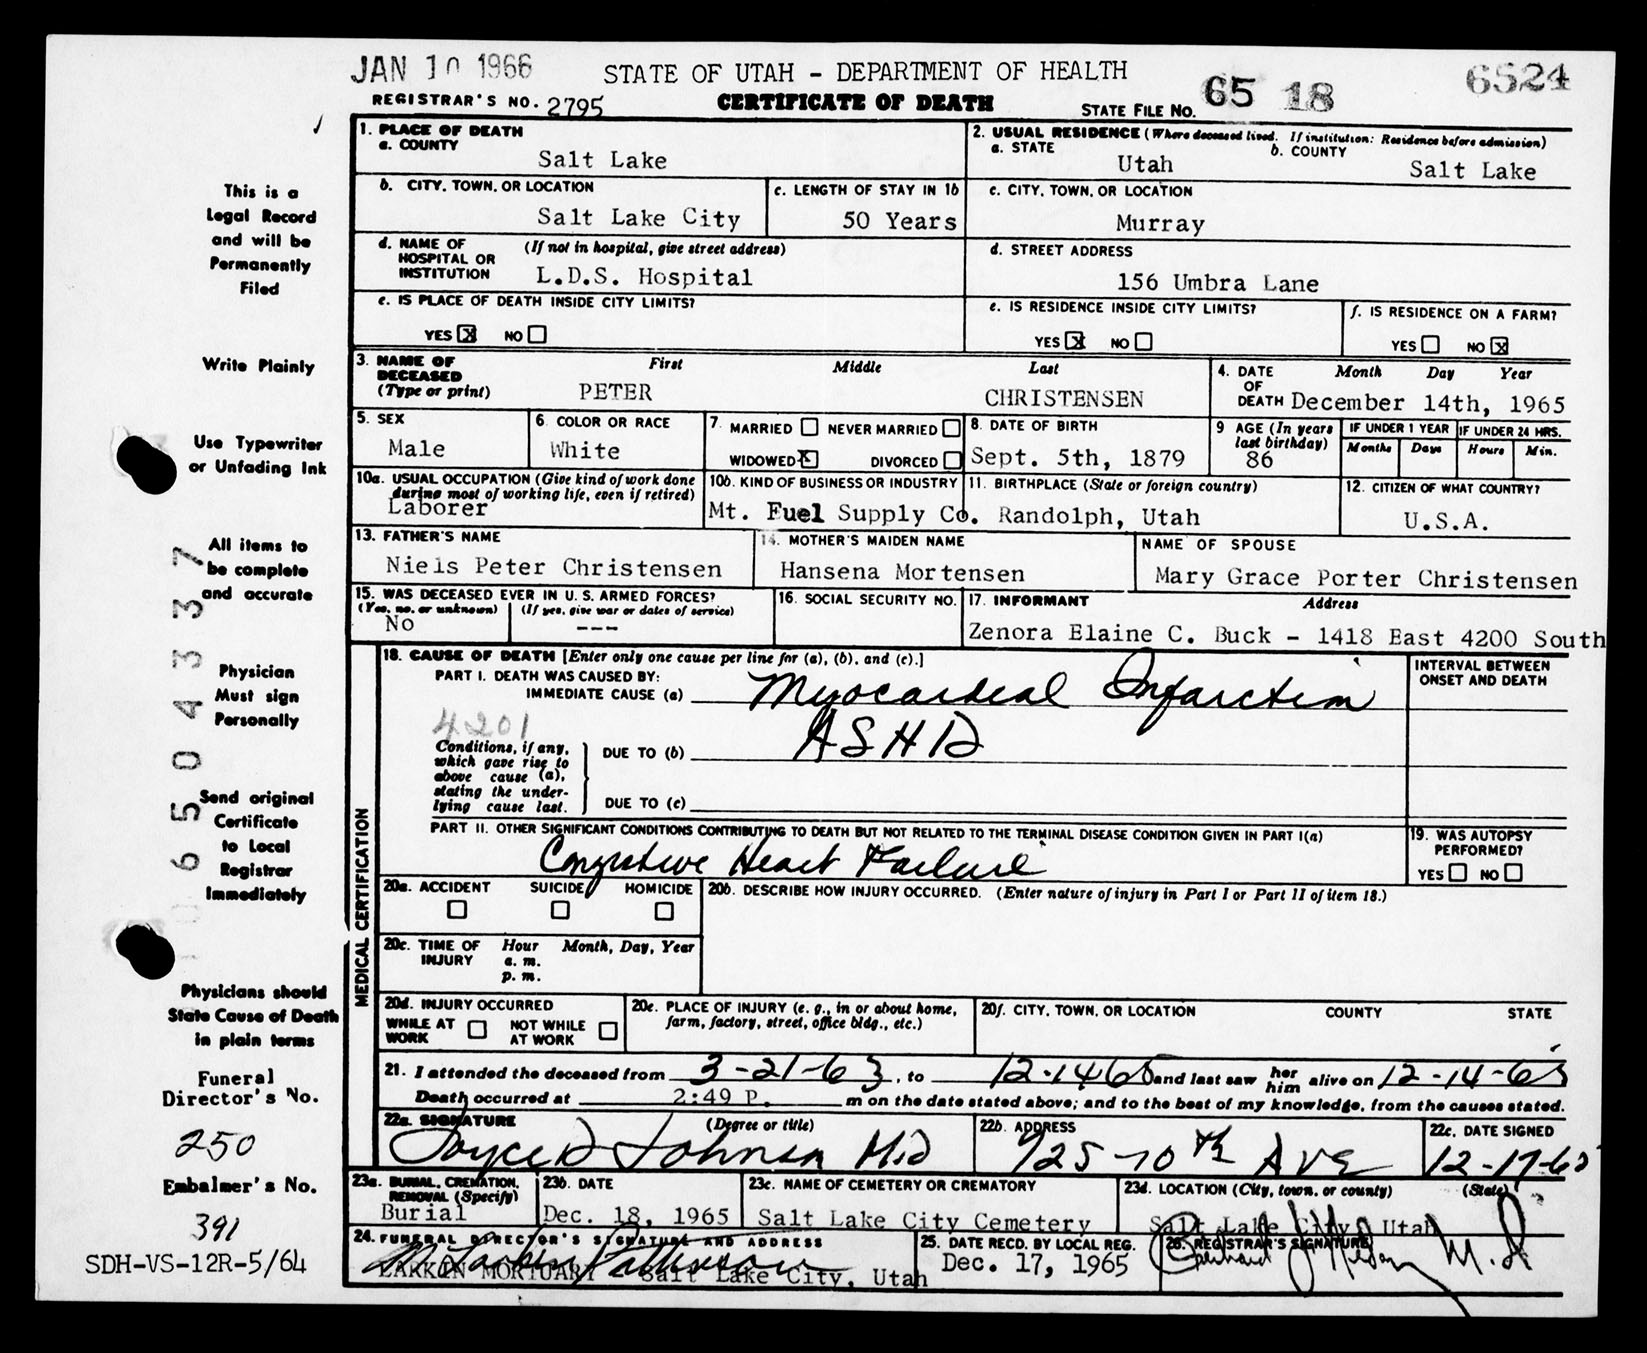 JAN 10 1966
STATE OF UTAH - DEPARTMENT OF HEALTH
6524
REGISTRAR'S NO. 2795
CERTIFICATE OF DEATH
STATE FILE NO. 65 18
1. PLACE OF DEATH
a. COUNTY
Salt Lake
2. USUAL RESIDENCE (Where deceased lived. If institution: Residence before admission)
a. STATE
Utah
b. COUNTY
Salt Lake
b. CITY, TOWN, OR LOCATION
Salt Lake City
c. LENGTH OF STAY IN 1b
50 Years
c. CITY, TOWN, OR LOCATION
Murray
d. NAME OF HOSPITAL OR INSTITUTION
(If not in hospital, give street address)
L.D.S. Hospital
d. STREET ADDRESS
156 Umbra Lane
e. IS PLACE OF DEATH INSIDE CITY LIMITS?
YES X NO
e. IS RESIDENCE INSIDE CITY LIMITS?
YES X NO
f. IS RESIDENCE ON A FARM?
YES NO X
3. NAME OF DECEASED (Type or print)
First Middle Last
PETER CHRISTENSEN
4. DATE OF DEATH
Month Day Year
December 14th, 1965
5. SEX
Male
6. COLOR OR RACE
White
7. MARRIED NEVER MARRIED
WIDOWED X DIVORCED
8. DATE OF BIRTH
Sept. 5th, 1879
9 AGE (In years last birthday)
86
IF UNDER 1 YEAR
Months Days
IF UNDER 24 HRS.
Hours Min.
10a. USUAL OCCUPATION (Give kind of work done during most of working life, even if retired)
Laborer
10b. KIND OF BUSINESS OR INDUSTRY
Mt. Fuel Supply Co.
11. BIRTHPLACE (State or foreign country)
Randolph, Utah
12. CITIZEN OF WHAT COUNTRY?
U.S.A.
13. FATHER'S NAME
Niels Peter Christensen
14. MOTHER'S MAIDEN NAME
Hansena Mortensen
NAME OF SPOUSE
Mary Grace Porter Christensen
15. WAS DECEASED EVER IN U.S. ARMED FORCES?
(Yes, no, or unknown) (If yes, give war or dates of service)
No ---
16. SOCIAL SECURITY NO.
17. INFORMANT Address
Zenora Elaine C. Buck - 1418 East 4200 South
MEDICAL CERTIFICATION
18. CAUSE OF DEATH [Enter only one cause per line for (a), (b), and (c).]
PART I. DEATH WAS CAUSED BY:
IMMEDIATE CAUSE (a) Myocardial Infarction
INTERVAL BETWEEN ONSET AND DEATH
4201
Conditions, if any,
which gave rise to
above cause (a),
stating the under-
lying cause last.
DUE TO (b) ASHD
DUE TO (c)
PART II. OTHER SIGNIFICANT CONDITIONS CONTRIBUTING TO DEATH BUT NOT RELATED TO THE TERMINAL DISEASE CONDITION GIVEN IN PART I(a)
Congestive Heart Failure
19. WAS AUTOPSY PERFORMED?
YES NO
20a. ACCIDENT SUICIDE HOMICIDE
20b. DESCRIBE HOW INJURY OCCURRED. (Enter nature of injury in Part I or Part II of item 18.)
20c. TIME OF INJURY
Hour Month, Day, Year
a. m.
p. m.
20d. INJURY OCCURRED
WHILE AT WORK NOT WHILE AT WORK
20e. PLACE OF INJURY (e. g., in or about home, farm, factory, street, office bldg., etc.)
20f. CITY, TOWN, OR LOCATION COUNTY STATE
21. I attended the deceased from 3-21-63, to 12-14 65 and last saw her him alive on 12-14-65
Death occurred at 2:49 P. m on the date stated above; and to the best of my knowledge, from the causes stated.
22a. SIGNATURE (Degree or title)
M.D
22b. ADDRESS
925-10th AVE
22c. DATE SIGNED
12-17-65
23a. BURIAL, CREMATION, REMOVAL (Specify)
Burial
23b. DATE
Dec. 18, 1965
23c. NAME OF CEMETERY OR CREMATORY
Salt Lake City Cemetery
23d. LOCATION (City, town, or county) (State)
Salt Lake City, Utah
24. FUNERAL DIRECTOR'S SIGNATURE AND ADDRESS
LARKIN MORTUARY Salt Lake City, Utah
25. DATE RECD. BY LOCAL REG.
Dec. 17, 1965
26. REGISTRAR'S SIGNATURE
M.D
This is a
Legal Record
and will be
Permanently
Filed
Write Plainly
Use Typewriter
or Unfading Ink
All items to
be complete
and accurate
Physician
Must sign
Personally
Send original
Certificate
to Local
Registrar
Immediately
Physicians should
State Cause of Death
in plain terms
Funeral
Director's No.
250
Embalmer's No.
391
SDH-VS-12R-5/64